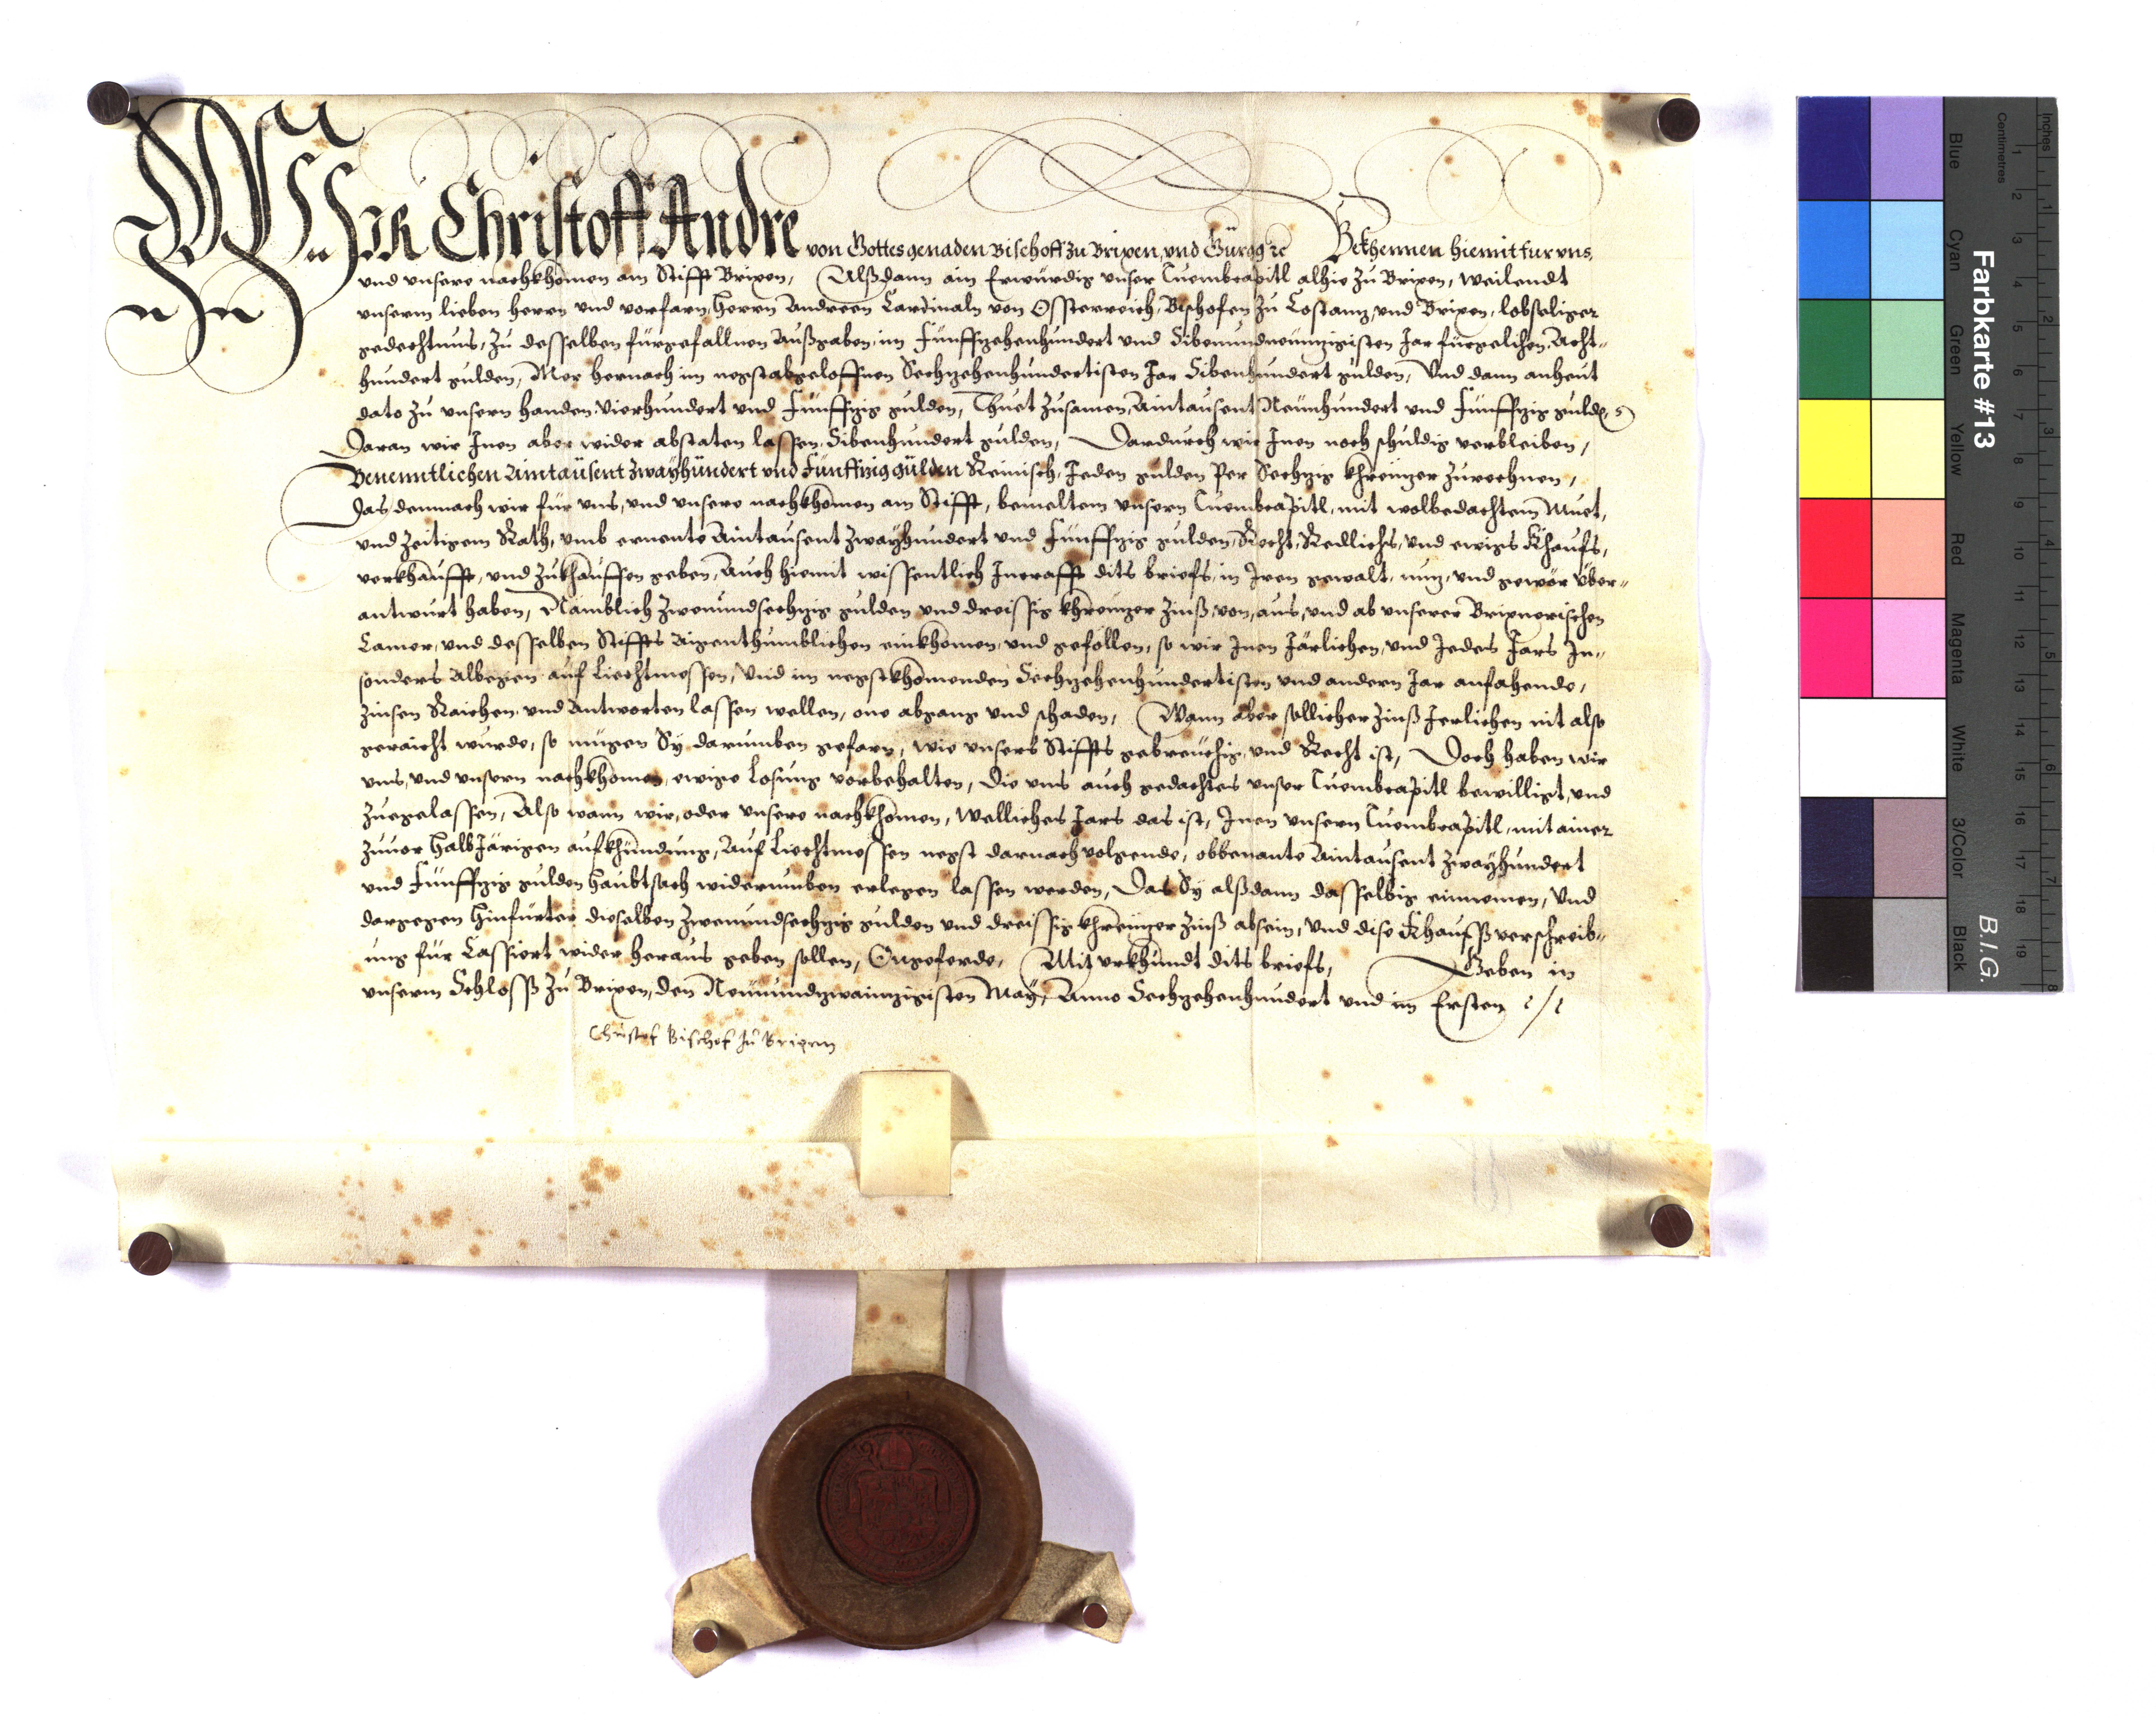 Wir Christoff Andre von Gottes genaden Bischoff zu Brixen, und Gürgg ꝛc Bekhennen hiemit fur uns,
und unsere nachkhomen am Stifft Brixen, Alßdann ain Erwürdig unser Tuembcapitl alhie zu Brixen, weilendt
unserm lieben herrn und vorfarn, Herrn Andreen Cardinaln von Össterreich, Bischofen zu Costanz, und Brixen, lobseliger
gedechtnus, zu desselben fürgefallnen Außgaben, im Fünffzehenhundert und Sibenundneünzigisten Jar fürgelihen, Acht-
hundert gulden, Mer hernach im negstabgeloffnen Sechzehenhundertisten Jar Sibenhundert gulden, Und dann anheut
dato zu unsern handen, Vierhundert und Fünffzig gulden, Thuet zusamen, Aintausent Neünhundert und Fünffzig gulden
Daran wir Inen aber wider abstaten lassen, Sibenhundert gulden, Dardurch wir Inen noch schuldig verbleiben,
Benenntlichen Aintausent zwayhundert und Fünffzig gülden Reinisch, Jeden gulden per Sechzig khreüzer zurechnen,
Das demnach wir für uns, und unsere nachkhomen am Stifft, bemeltem unserm Tuembcapitl, mit wolbedachtem Muet,
und zeitigem Rath, umb ernente Aintausent zwayhundert und Fünffzig gulden, Recht, Redlichs, und ewigs Khaufs,
verkhaufft, und zukhauffen geben, Auch hiemit wissentlich Incrafft dits briefs, in Iren gewalt, nuz, und gewör über-
antwurt haben, Namblich zwenundsechzig gulden und dreissig khreüzer Zinß, von, aus, und ab unserer Brixnerischen
Camer, und desselben Stiffts Aigenthumblichen einkhomen, und gefellen, so wir Inen Järlichen, und Jedes Jars In-
sonders Albegen auf Liechtmessen, Und im negstkhomenden Sechzehenhundertisten und andern Jar anfahende,
Zinsen Raichen, und Antworten lassen wellen, one abgang und schaden, Wann aber sollicher Zinß Jerlichen nit also
geraicht wurde, so mügen Sy darumben gefarn, wie unsers Stiffts gebreüchig, und Recht ist, Doch haben wir
uns, und unsern nachkhomen, ewige Losung vorbehalten, die uns auch gedachtes unser Tuembcapitl bewilligt, und
zuegelassen, Also wann wir, oder unsere nachkhomen, welliches Jars das ist, Inen unserm Tuembcapitl, mit ainer
zuvor halb Järigen aufkhündung, Auf Liechtmessen negst darnach volgende, obbenante Aintausent zwayhundert
und Fünffzig gulden Haubtsach widerumben erlegen lassen werden, Das Sy alßdann dasselbig einnemen, Und
dargegen hinfürter dieselben zwenundsechzig gulden und dreissig khreüzer Zinß absein, und dise Khaufßverschreib-
ung für Cassiert wider heraus geben sollen, Ongeferde, Mit urkhundt dits briefs, Geben in
unserm Schloss zu Brixen, den Neünundzwainzigisten May, Anno Sechzehenhundert und im Ersten
Christof Bischof zu Brixen
Farbkarte #13
B.I.G.
Inches
Centimetres
1 2 3 4 5 6 7 8
1 2 3 4 5 6 7 8 9 10 11 12 13 14 15 16 17 18 19
Blue
Cyan
Green
Yellow
Red
Magenta
White
3/Color
Black